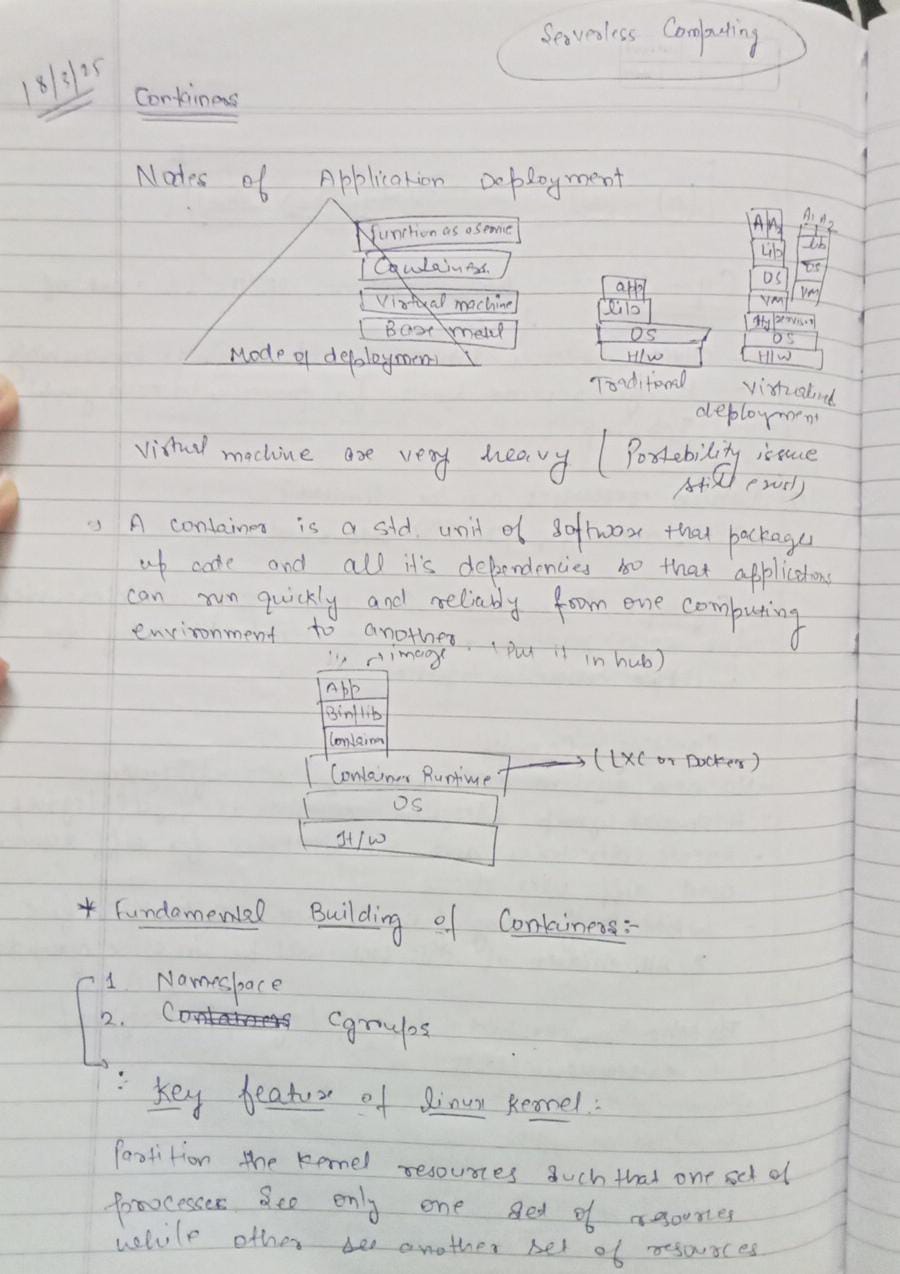 Serverless Computing
18/3/25
Containers
Nodes of Application Deployment
function as a service
Containers.
Virtual machine
Base metal
Mode of deployment
app
lib
OS
H/W
Traditional
A A2
lib
OS
VM
Hypervisor
OS
H/W
A1 A2
lib
OS
VM
Virtualized
deployment
Virtual machine are very heavy (Portebility issue
still exist)
A container is a std. unit of software that packages
up code and all it's dependencies so that applications
can run quickly and reliably from one computing
environment to another.
image. (Put it in hub)
App
Bin/lib
Container
Container Runtime → (LXC or Docker)
OS
H/W
* Fundamental Building of Containers:-
1. Namespace
2. Containers cgroups
Key feature of linux kernel:
Partition the kernel resources such that one set of
processes see only one set of resources
while other see another set of resources